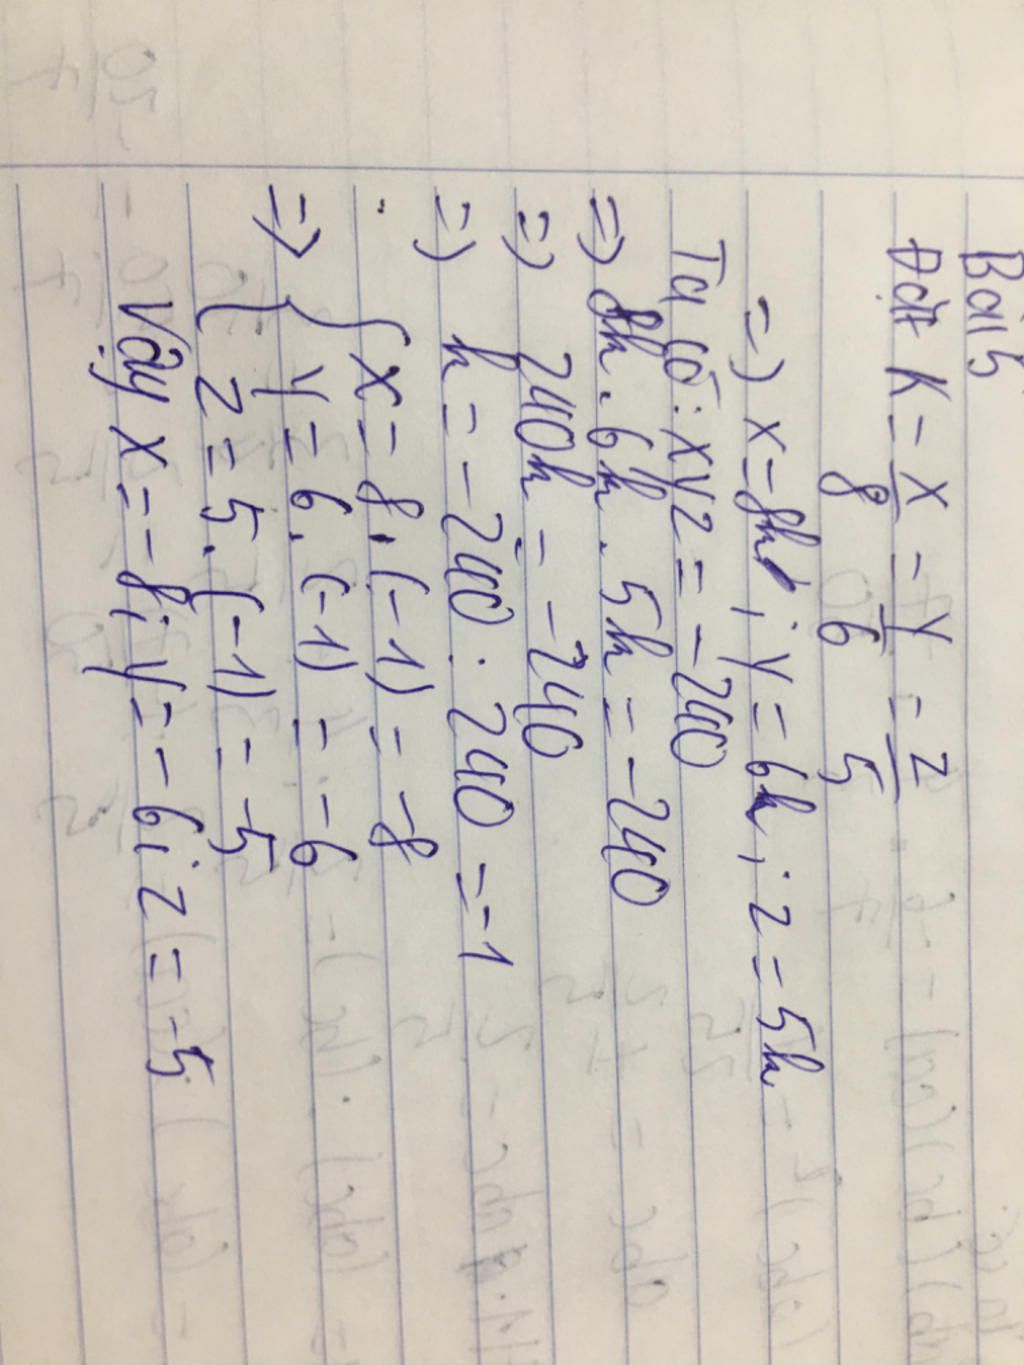 Bài 5
Đặt K = x/8 = y/6 = z/5
=> x = 8k ; y = 6k ; z = 5k
Ta có : xyz = -240
=> 8k . 6k . 5k = -240
=> 240k = -240
=> k = -240 : 240 = -1
=> { x = 8 . (-1) = -8
y = 6 . (-1) = -6
z = 5 . (-1) = -5
Vậy x = -8 ; y = -6 ; z = -5